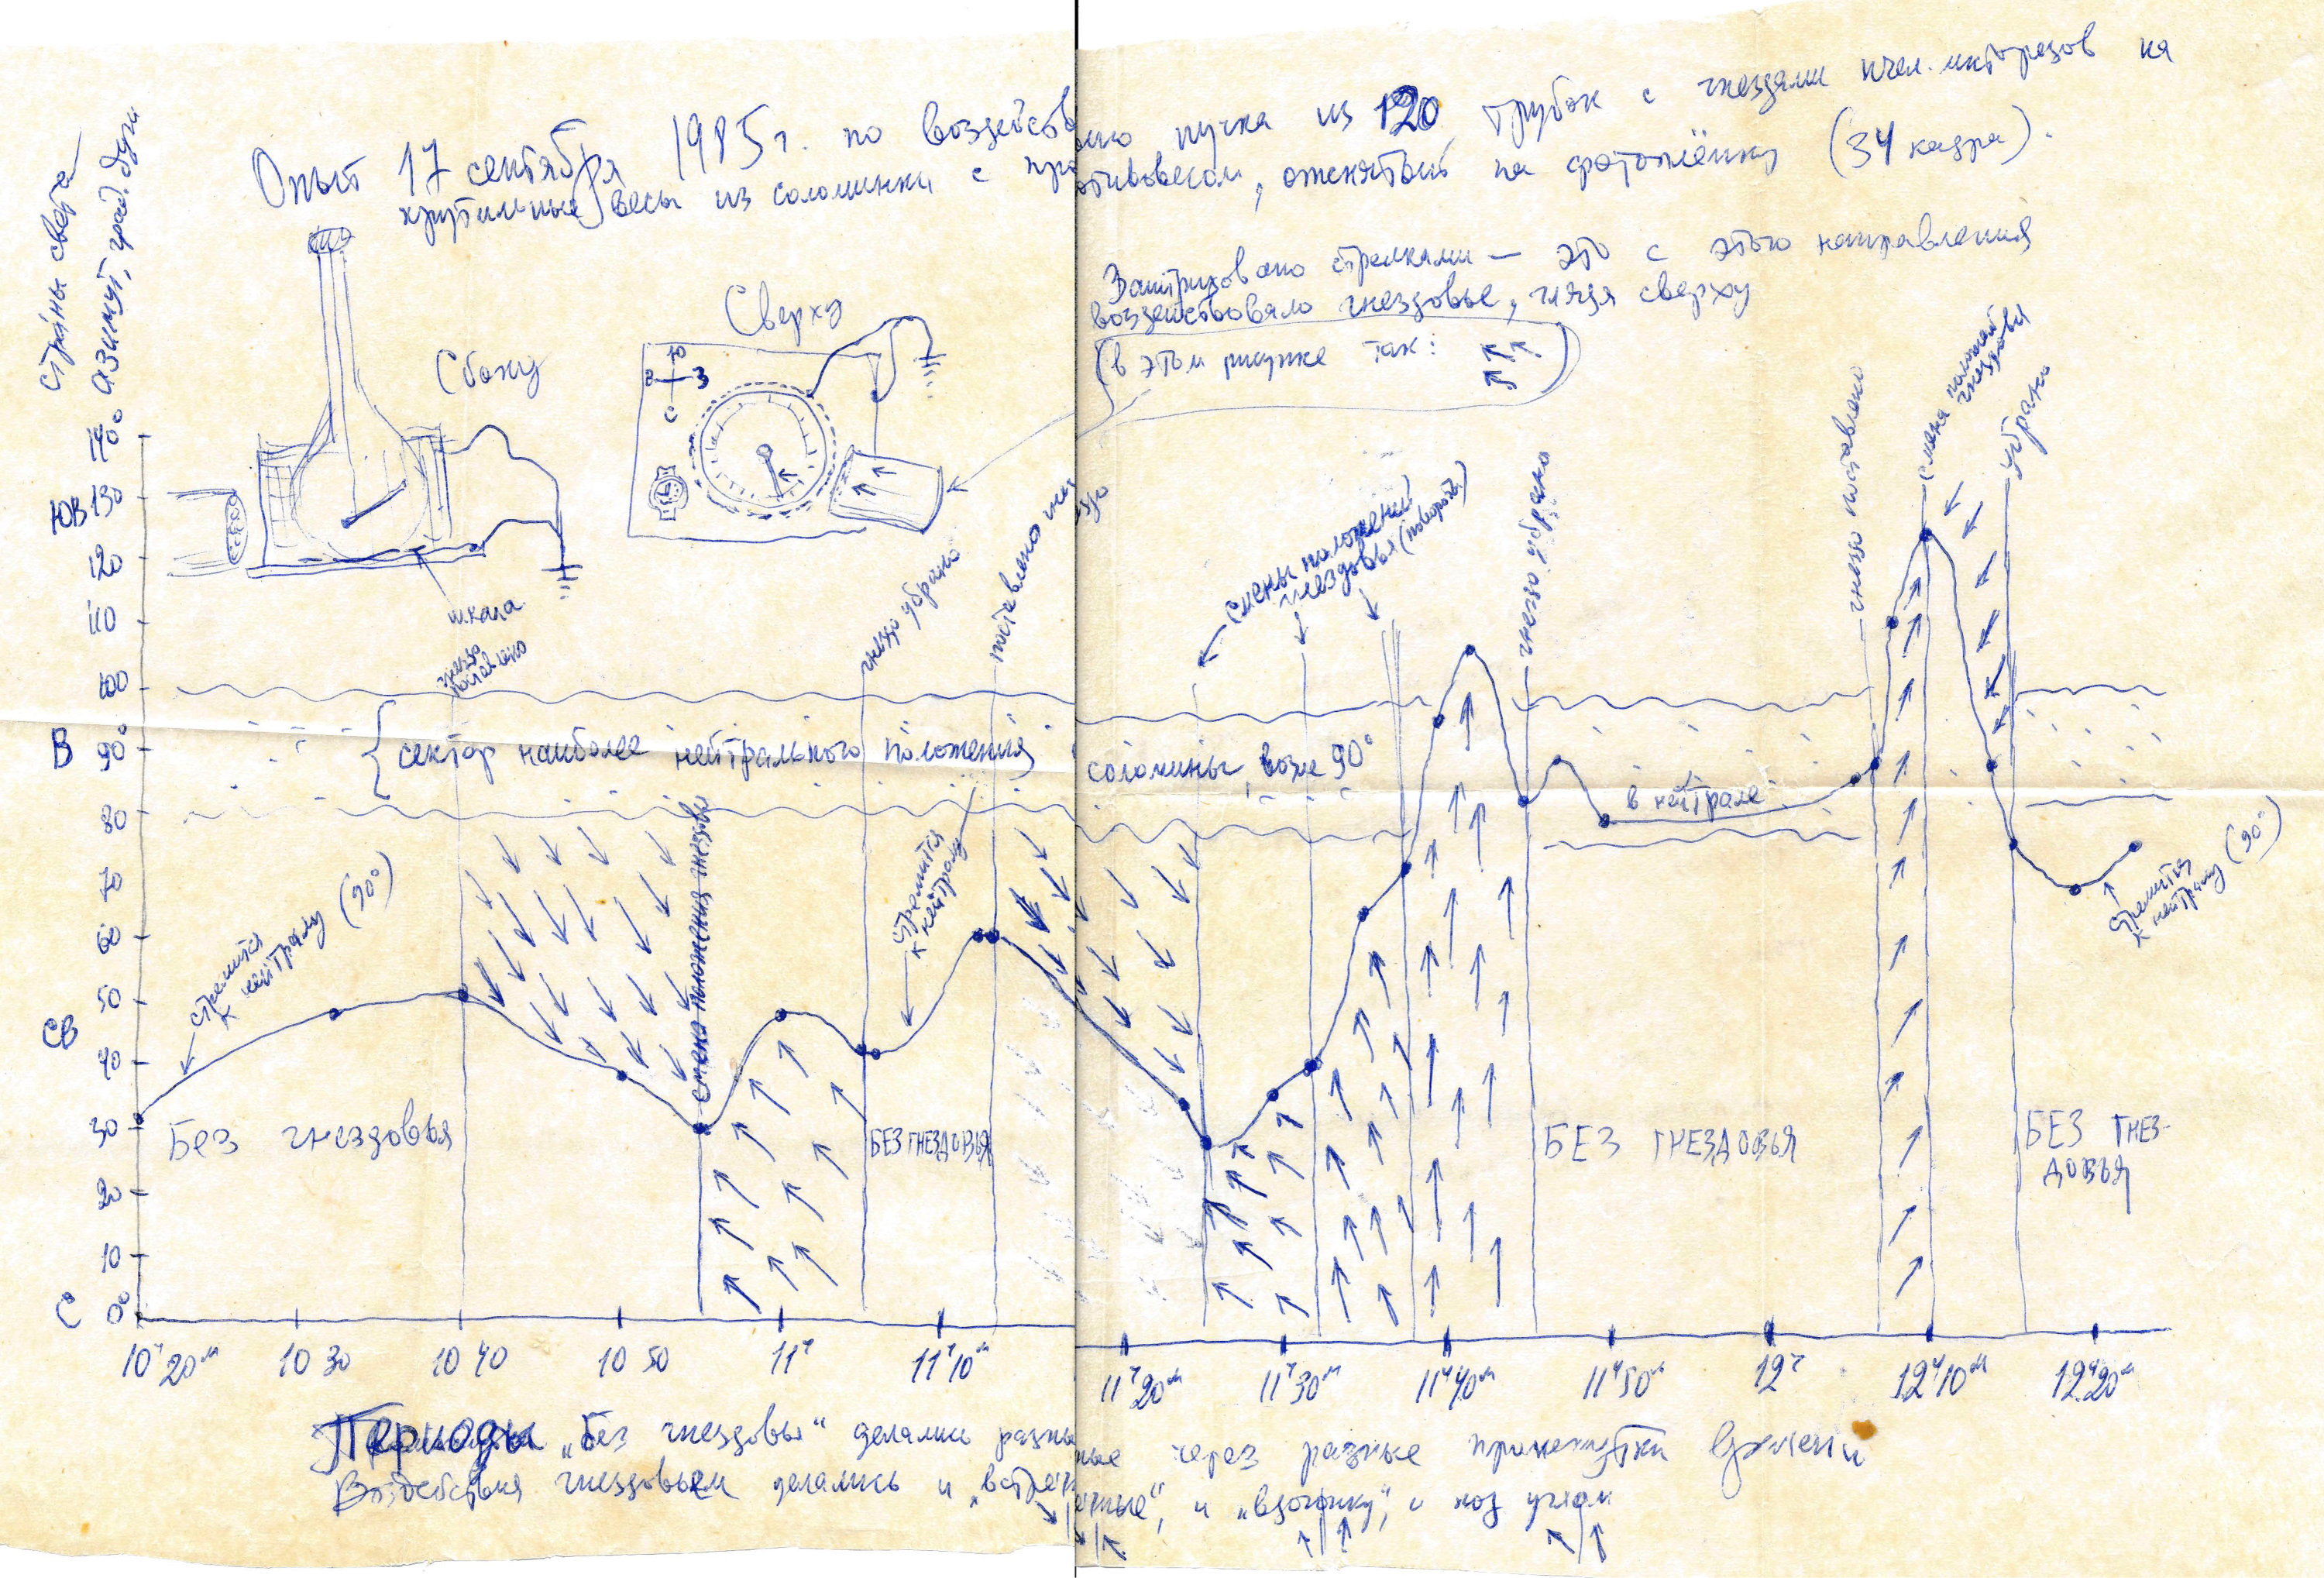 Опыт 17 сентября 1985 г. по воздействию пучка из 120 трубок с гнездами пчел. листорезов на
крутильные весы из соломинки с противовесом, отснятый на фотоплёнку (34 кадра).
Страны света
азимут, град. дуги
Заштриховано стрелками — это с этого направления
воздействовало гнездовье, глядя сверху
(в этом рисунке так:
)
Сбоку
Сверху
Ю
В
З
С
шкала
гнездо поставлено
гнездо убрано
поставлено гнездо
смены положений
гнездовья (повороты)
гнездо убрано
гнездо поставлено
смена положений
гнездовья
убрано
140°
ЮВ 130
120
110
100
В 90°
80
70
60
50
СВ
40
30
20
10
С 0°
сектор наиболее нейтрального положения соломины, возле 90°
в нейтрале
стремится
к нейтралу (90°)
смена положения гнездовья
стремится
к нейтралу
стремится
к нейтралу (90°)
Без гнездовья
БЕЗ ГНЕЗДОВЬЯ
БЕЗ ГНЕЗДОВЬЯ
БЕЗ ГНЕЗ-
ДОВЬЯ
10ч 20м
10 30
10 40
10 50
11ч
11ч 10м
11ч 20м
11ч 30м
11ч 40м
11ч 50м
12ч
12ч 10м
12ч 20м
Периоды „без гнездовья“ делались разные через разные промежутки времени
Воздействия гнездовьем делались и „встречные“, и „вдогонку“, и под углом